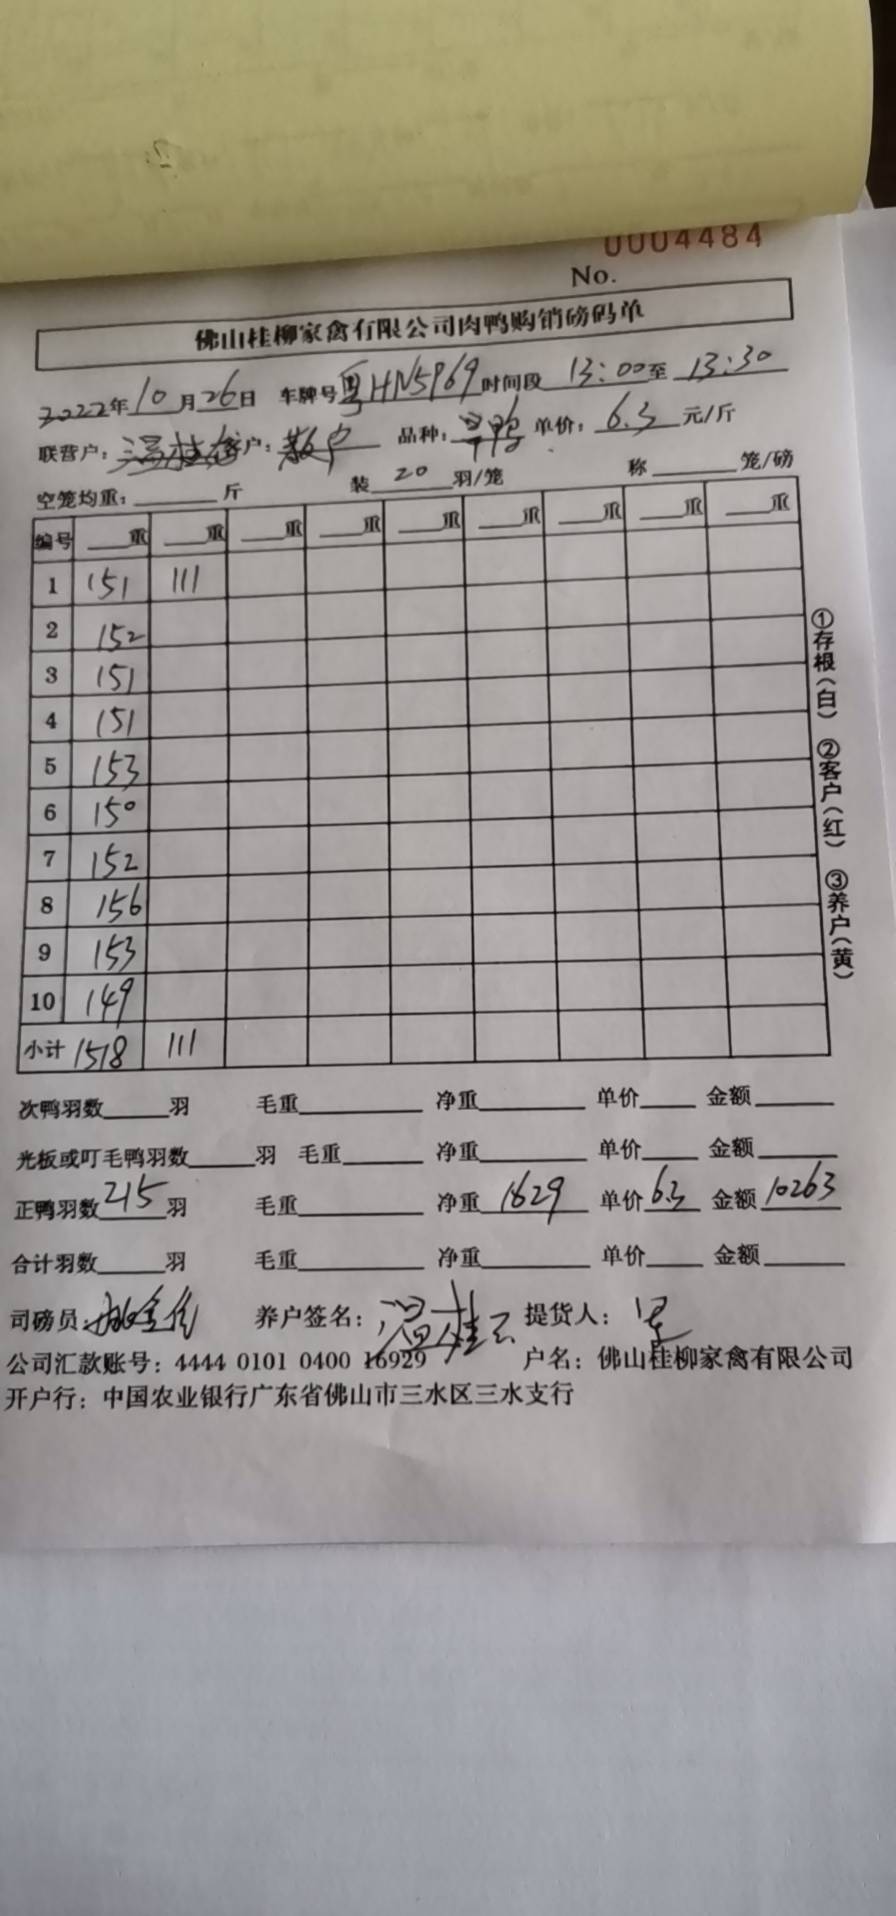 0004484
No.
佛山桂柳家禽有限公司肉鸭购销磅码单
2022年10月26日 车牌号粤HN5P69时间段13:00至13:30
联营户:温桂 客户:散户 品种: 鸭 单价:6.3元/斤
空笼均重:______斤 装20羽/笼 称______笼/磅
编号 ___重 ___重 ___重 ___重 ___重 ___重 ___重 ___重 ___重
1 151 111
2 152
3 151
4 151
5 153
6 150
7 152
8 156
9 153
10 149
小计 1518 111
次鸭羽数_____羽 毛重_____ 净重_____ 单价____ 金额_____
光板或叮毛鸭羽数_____羽 毛重_____ 净重_____ 单价____ 金额_____
正鸭羽数215羽 毛重_____ 净重1629 单价6.3 金额10263
合计羽数_____羽 毛重_____ 净重_____ 单价____ 金额_____
司磅员: 养户签名:温桂 提货人:
公司汇款账号:4444 0101 0400 16929 户名:佛山桂柳家禽有限公司
开户行:中国农业银行广东省佛山市三水区三水支行
①存根(白) ②客户(红) ③养户(黄)